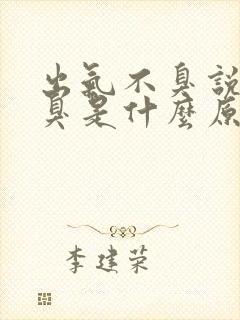 出氣不臭說
臭是什麼原
李建荣